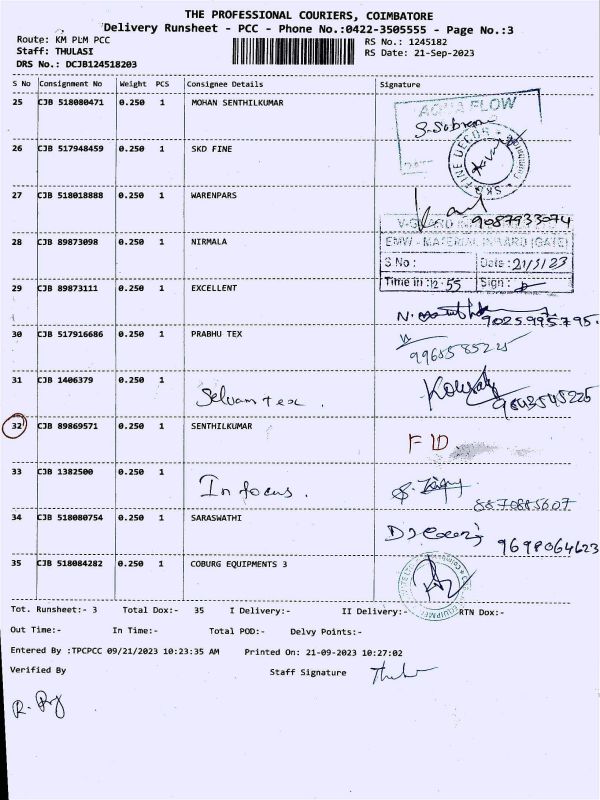 THE PROFESSIONAL COURIERS, COIMBATORE
Delivery Runsheet - PCC - Phone No.:0422-3505555 - Page No.:3
Route: KM PLM PCC RS No.: 1245182
Staff: THULASI RS Date: 21-Sep-2023
DRS No.: DCJB124518203
S No Consignment No Weight PCS Consignee Details Signature
25 CJB 518080471 0.250 1 MOHAN SENTHILKUMAR AQUA FLOW
26 CJB 517948459 0.250 1 SKD FINE
27 CJB 518018888 0.250 1 WARENPARS 9087933074
28 CJB 89873098 0.250 1 NIRMALA
EMW - MATERIAL INWARD (GATE)
S No : Date : 21/9/23
Time in : 12.55 Sign :
29 CJB 89873111 0.250 1 EXCELLENT 9025995795
30 CJB 517916686 0.250 1 PRABHU TEX 9965585225
31 CJB 1406379 0.250 1 Selvam tex 9843545225
32 CJB 89869571 0.250 1 SENTHILKUMAR F ID
33 CJB 1382500 0.250 1 In focus. 8870885607
34 CJB 518080754 0.250 1 SARASWATHI 9698064623
35 CJB 518084282 0.250 1 COBURG EQUIPMENTS 3
Tot. Runsheet:- 3 Total Dox:- 35 I Delivery:- II Delivery:- RTN Dox:-
Out Time:- In Time:- Total POD:- Delvy Points:-
Entered By :TPCPCC 09/21/2023 10:23:35 AM Printed On: 21-09-2023 10:27:02
Verified By Staff Signature